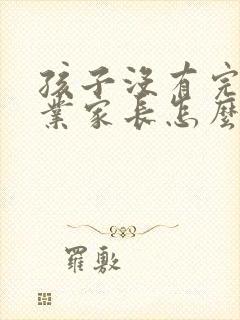 孩子没有完
業家長怎麼
羅敷